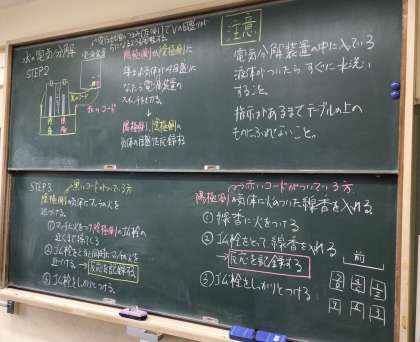 水の電気分解
STEP2
電源装置
黒のコード
赤のコード
陽極側か陰極側に
集まった気体が4目盛に
なったら電源装置の
スイッチを切る。
陽極側、陰極側の
気体の目盛を記録する
注意
電気分解装置の中に入っている
液体がついたらすぐに水洗い
すること。
指示があるまでテーブルの上の
ものにふれないこと。
STEP3
黒いコードがついている方
陰極側の気体にマッチの火を
近づける。
①マッチに火をつけ陰極側のゴム栓の
近くまで持ってくる
②ゴム栓をとると同時にマッチの火を
近づける
→反応を記録する
③ゴム栓をしっかりとつける
赤いコードがついている方
陽極側の気体に火のついた線香を入れる
①線香に火をつける
②ゴム栓をとって線香を入れる
→反応を記録する
③ゴム栓をしっかりとつける
前